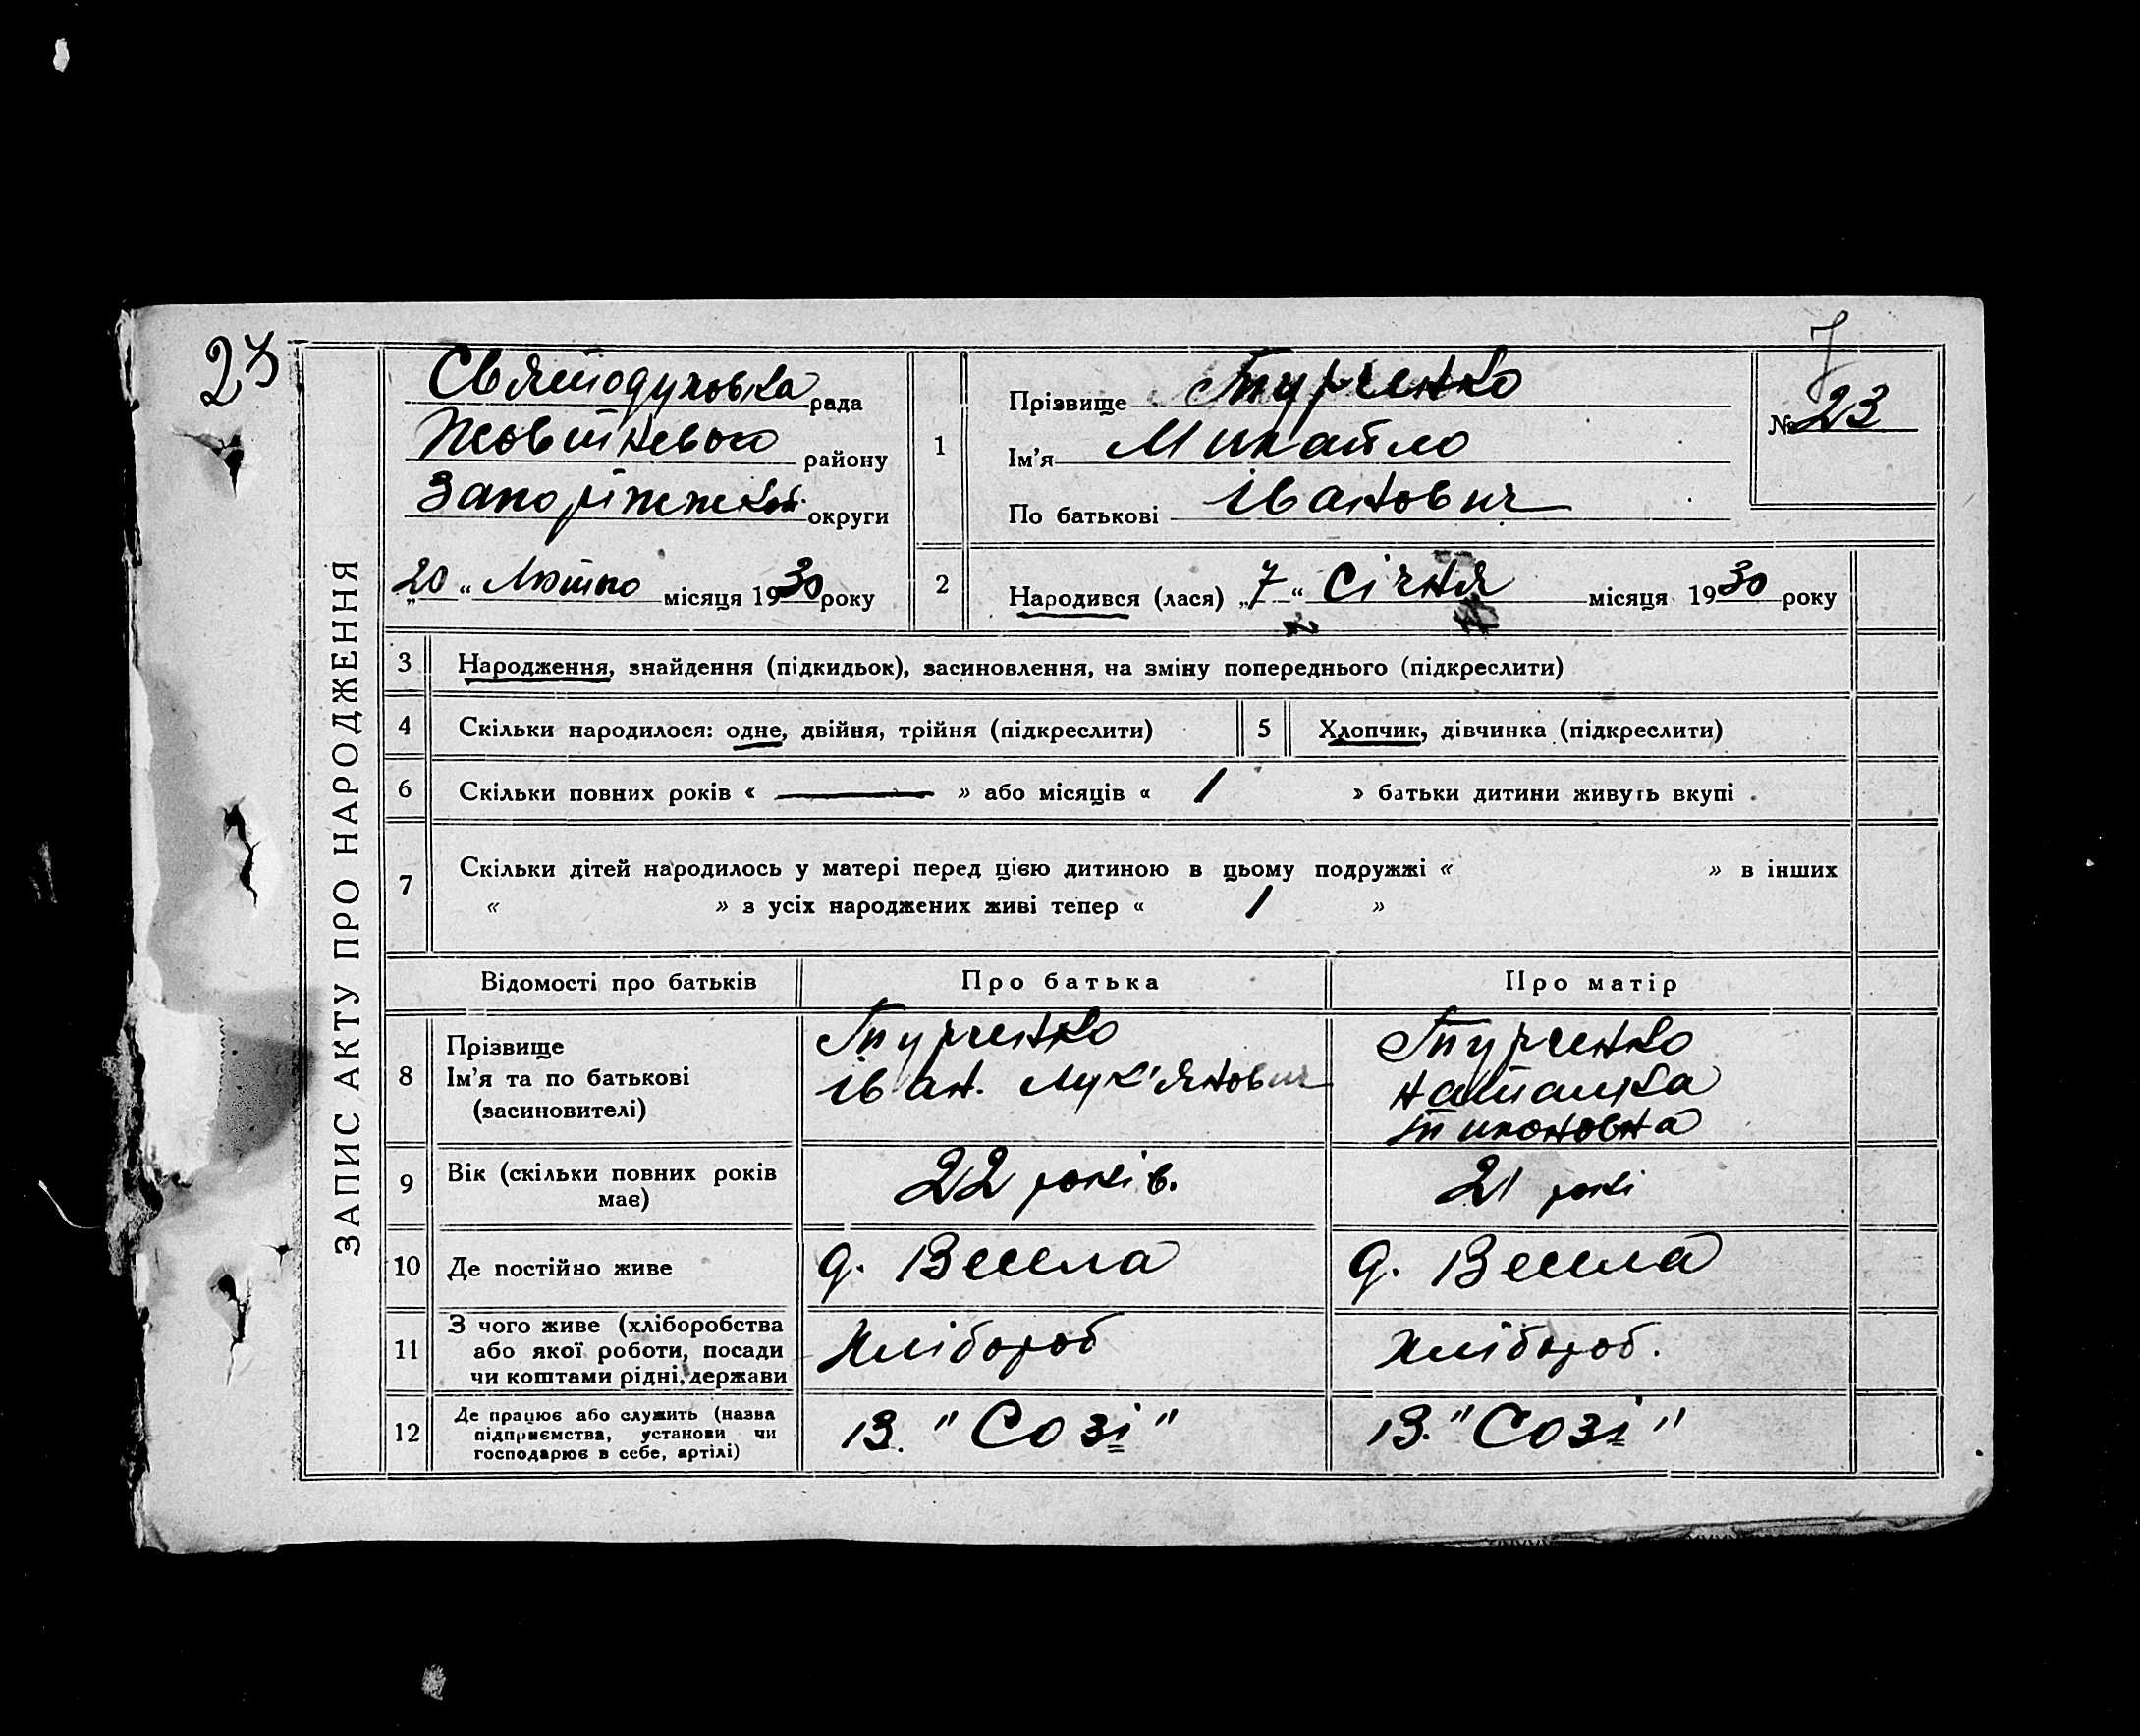 23
7
ЗАПИС АКТУ ПРО НАРОДЖЕННЯ
Святодуховка рада
Жовтневого району
Запоріжжської округи
„20“ Лютого місяця 1930 року
1
Прізвище Турченко
Ім'я Михайло
По батькові Іванович
№ 23
2 Народився (лася) „7“ Січня місяця 1930 року
3 Народження, знайдення (підкидьок), засиновлення, на зміну попереднього (підкреслити)
4 Скільки народилося: одне, двійня, трійня (підкреслити) 5 Хлопчик, дівчинка (підкреслити)
6 Скільки повних років « — » або місяців « 1 » батьки дитини живуть вкупі
7 Скільки дітей народилось у матері перед цією дитиною в цьому подружжі « » в інших
« » з усіх народжених живі тепер « 1 »
Відомості про батьків Про батька Про матір
8
Прізвище Турченко Турченко
Ім'я та по батькові Іван. Лук'янович Наталка
(засиновителі) Тихоновна
9 Вік (скільки повних років має) 22 років. 21 рокі
10 Де постійно живе д. Весела д. Весела
11 З чого живе (хліборобства
або якої роботи, посади Хлібороб Хлібороб.
чи коштами рідні, держави
12 Де працює або служить (назва
підприємства, установи чи В. "Созі" В. "Созі"
господарює в себе, артілі)